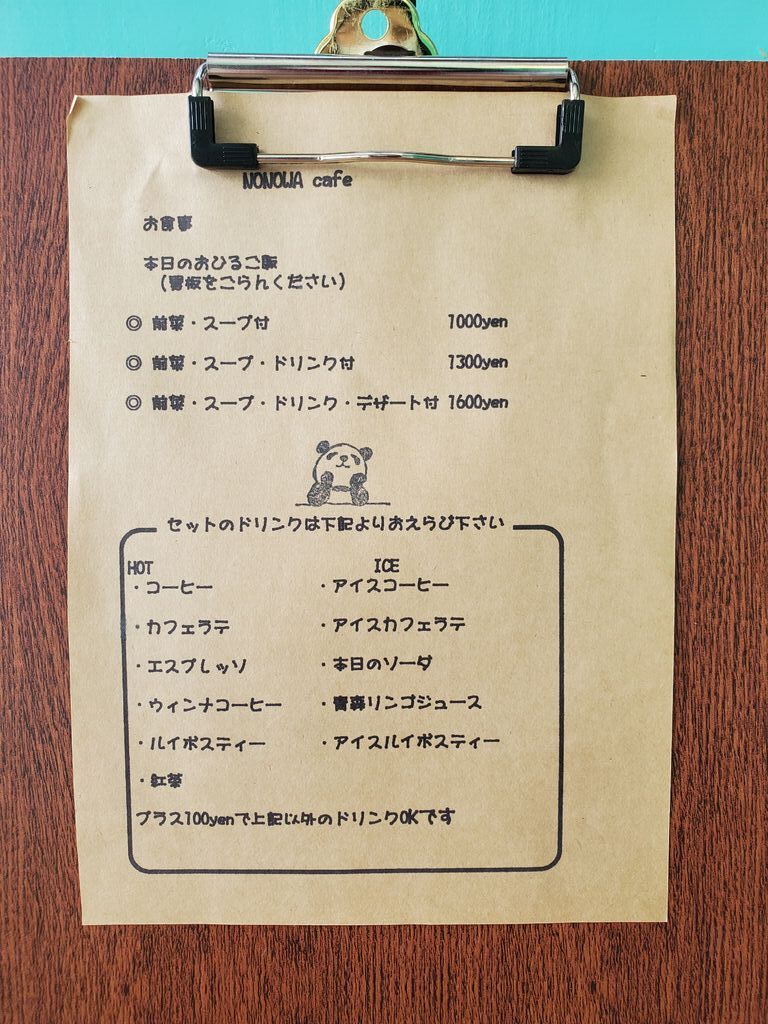 NONOWA cafe
お食事
本日のおひるご飯
(看板をごらんください)
◎ 前菜・スープ付 1000yen
◎ 前菜・スープ・ドリンク付 1300yen
◎ 前菜・スープ・ドリンク・デザート付 1600yen
セットのドリンクは下記よりおえらび下さい
HOT ICE
・コーヒー ・アイスコーヒー
・カフェラテ ・アイスカフェラテ
・エスプレッソ ・本日のソーダ
・ウィンナコーヒー ・青森リンゴジュース
・ルイボスティー ・アイスルイボスティー
・紅茶
プラス100yenで上記以外のドリンクOKです